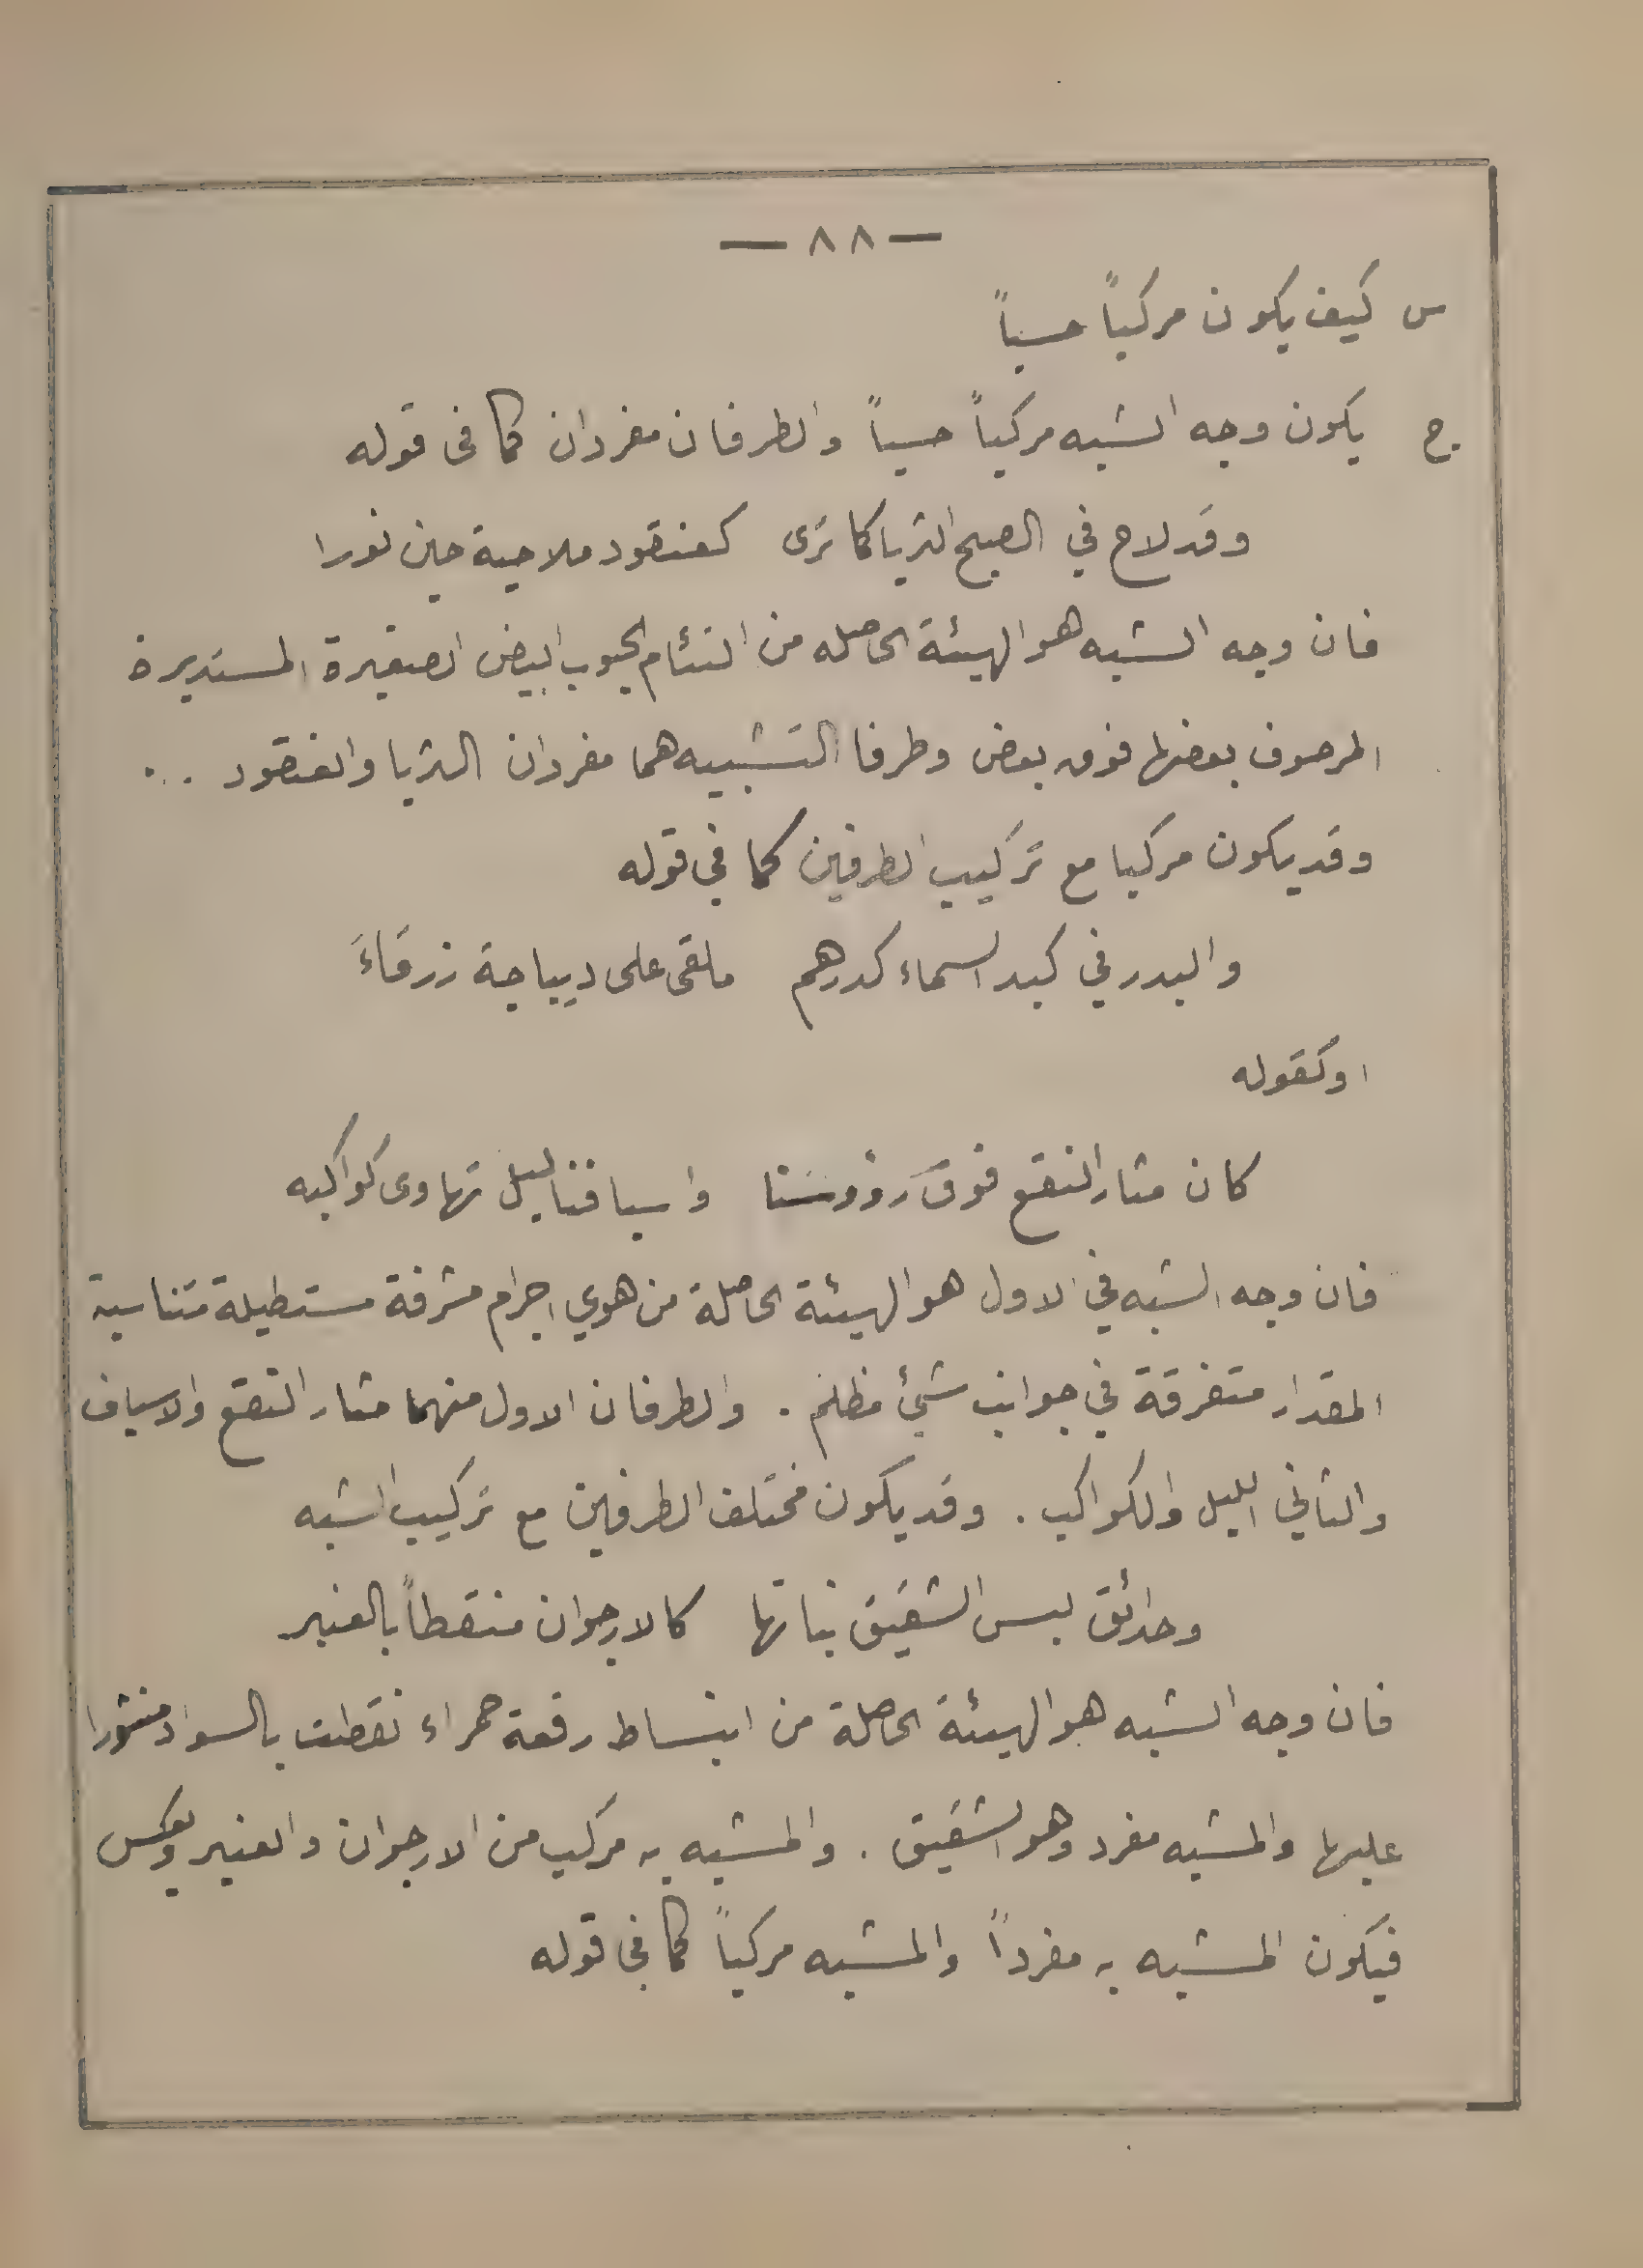 — ٨٨ —
س كيف يكون مركباً حسياً
ج. يكون وجه الشبه مركباً حسياً والطرفان مفردان كما فى قوله
وقد لاح في الصبح الثريا كما ترى كعنقود ملاحية حين نورا
فان وجه الشبه هو الهيئة الحاصله من التئام الحبوب البيض الصغيرة المستديرة
المرصوف بعضها فوق بعض وطرفا التشبيه هما مفردان الثريا والعنقود ..
وقد يكون مركبا مع تركيب الطرفين كما في قوله
والبدر في كبد السماء كدرهم ملقى على ديباجة زرقاءَ
او كقوله
كان مثار النقع فوق رؤوسنا واسيافنا ليل تهاوى كواكبه
فان وجه الشبه في الاول هو الهيئة الحاصلة من هوي اجرام مشرقة مستطيلة متناسبة
المقدار متفرقة في جوانب شيئ مظلم . والطرفان الاول منهما مثار النقع والاسياف
والثاني الليل والكواكب . وقد يكون مختلف الطرفين مع تركيب الشبه
وحدائق لبس الشقيق نباتها كالارجوان منقطاً بالعنبر
فان وجه الشبه هو الهيئة الحاصلة من انبساط رقعة حمراء نقطت بالسواد منثورا
عليها والمشبه مفرد وهو الشقيق . والمشبه به مركب من الارجوان والعنبر وبعكس
فيكون المشبه به مفرداً والمشبه مركباً كما فى قوله